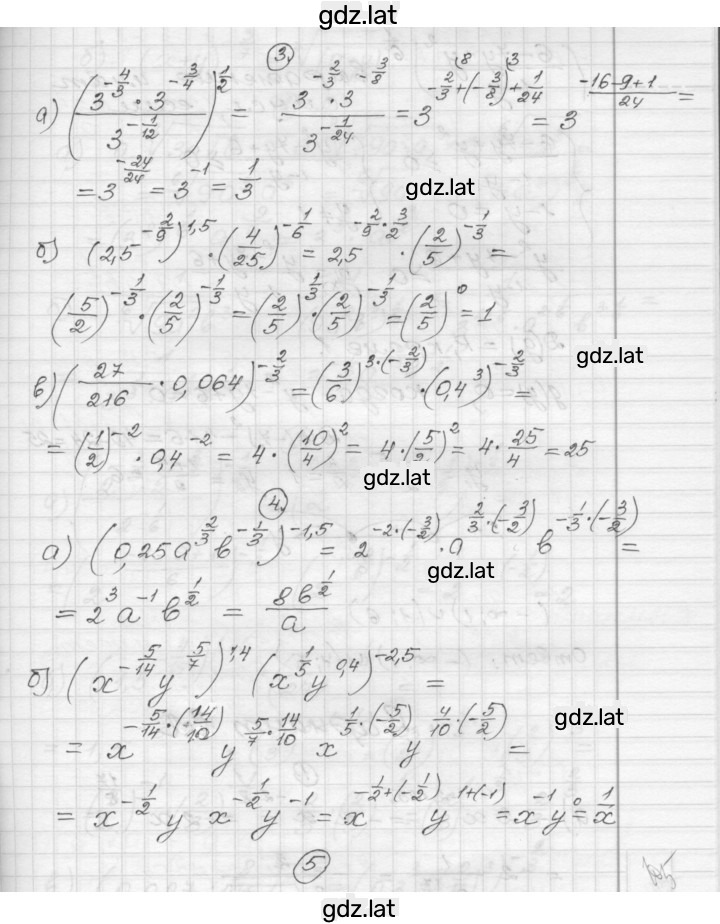 gdz.lat
3.
а) ((3^(-4/3) · 3^(-3/4)) / 3^(-1/12))^(1/2) = (3^(-2/3) · 3^(-3/8)) / 3^(-1/24) = 3^(-2/3+(-3/8)+1/24) = 3^((-16-9+1)/24) =
= 3^(-24/24) = 3^(-1) = 1/3
gdz.lat
б) (2,5^(-2/9))^(1,5) · (4/25)^(-1/6) = 2,5^(-2/9 · 3/2) · (2/5)^(-1/3) =
(5/2)^(-1/3) · (2/5)^(-1/3) = (2/5)^(1/3) · (2/5)^(-1/3) = (2/5)^0 = 1
gdz.lat
в) (27/216 · 0,064)^(-2/3) = (3/6)^(3·(-2/3)) · (0,4^3)^(-2/3) =
= (1/2)^(-2) · 0,4^(-2) = 4 · (10/4)^2 = 4 · (5/2)^2 = 4 · 25/4 = 25
gdz.lat
4.
а) (0,25a^(2/3) b^(-1/3))^(-1,5) = 2^(-2·(-3/2)) · a^(2/3·(-3/2)) b^(-1/3·(-3/2)) =
gdz.lat
= 2^3 a^(-1) b^(1/2) = 8b^(1/2) / a
б) (x^(-5/14) y^(5/7))^(1,4) (x^(1/5) y^(0,4))^(-2,5) =
gdz.lat
= x^(-5/14·(14/10)) y^(5/7·14/10) x^(1/5·(-5/2)) y^(4/10·(-5/2)) =
= x^(-1/2) y x^(-1/2) y^(-1) = x^(-1/2+(-1/2)) y^(1+(-1)) = x^(-1) y^0 = 1/x
5
gdz.lat